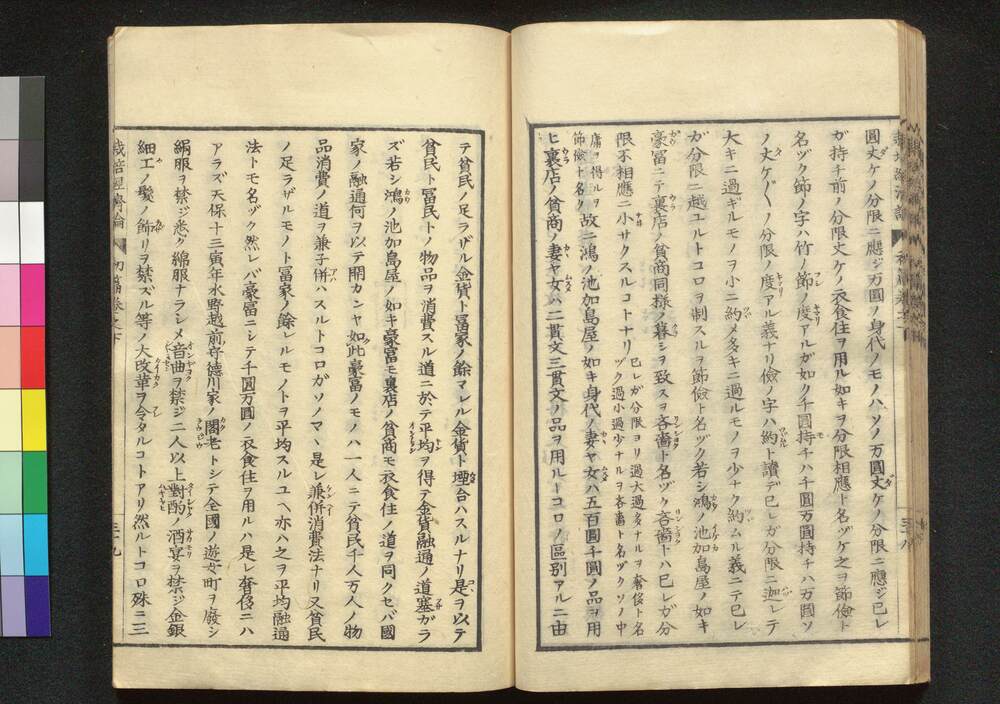 圓丈ケノ分限ニ應ジ万圓ノ身代ノモノハソノ万圓丈ケノ分限ニ應ジ已レ
ガ持チ前ノ分限丈ケノ衣食住ヲ用ル如キヲ分限相應ト名ヅケ之ヲ節儉ト
名ヅク節ノ字ハ竹ノ節ノ度アルガ如ク千圓持チハ千圓万圓持チハ万圓ソ
ノ丈ケ〳〵ノ分限ノ度アル義ナリ儉ノ字ハ約ト讀デ已レガ分限ニ迦レテ
大キニ過ギルモノヲ小ニ約メ多キニ過ルモノヲ少ナク約ムル義ニテ已レ
ガ分限ニ越ユルトコロヲ制スルヲ節儉ト名ヅク若シ鴻ノ池加島屋ノ如キ
豪冨ニテ裏店ノ貧商同様ノ暮シヲ致スヲ吝嗇ト名ヅク吝嗇トハ已レガ分
限不相應ニ小サクスルコトナリ已レガ分限ヨリ過大過多ナルヲ奢侈ト名
ヅク過小過少ナルヲ吝嗇ト名ヅクソノ中
庸ヲ得ルヲ
節儉ト名ク
故ニ鴻ノ池加島屋ノ如キ身代ノ妻ヤ女ハ五百圓千圓ノ品ヲ用
ヒ裏店ノ貧商ノ妻ヤ女ハ二貫文三貫文ノ品ヲ用ルトコロノ區別アルニ由
テ貧民ノ足ラザル金貨ト冨家ノ餘マレル金貨ト埋合ハスルナリ是ヲ以テ
貧民ト冨民トノ物品ヲ消費スル道ニ於テ平均ヲ得テ金貨融通ノ道塞ガラ
ズ若シ鴻ノ池加島屋ノ如キ豪冨モ裏店ノ貧商モ衣食住ノ道ヲ同クセバ國
家ノ融通何ヲ以テ開カンヤ如此豪冨ノモノハ一人ニテ貧民千人万人ノ物
品消費ノ道ヲ兼子併ハスルトコロガソノマヽ是レ兼併消費法ナリ又貧民
ノ足ラザルモノト冨家ノ餘レルモノトヲ平均スルユヘ亦ハ之ヲ平均融通
法トモ名ヅク然レバ豪冨ニシテ千圓万圓ノ衣食住ヲ用ルハ是レ奢侈ニハ
アラズ天保十三寅年水野越前守德川家ノ閣老トシテ全國ノ遊女町ヲ廢シ
絹服ヲ禁ジ悉ク綿服ナラシメ音曲ヲ禁ジ二人以上對酌ノ酒宴ヲ禁ジ金銀
細工ノ髪ノ飾リヲ禁ズル等ノ大改革ヲ令タルコトアリ然ルトコロ殊ニ三
栽培經濟論 初篇卷之下 三十九